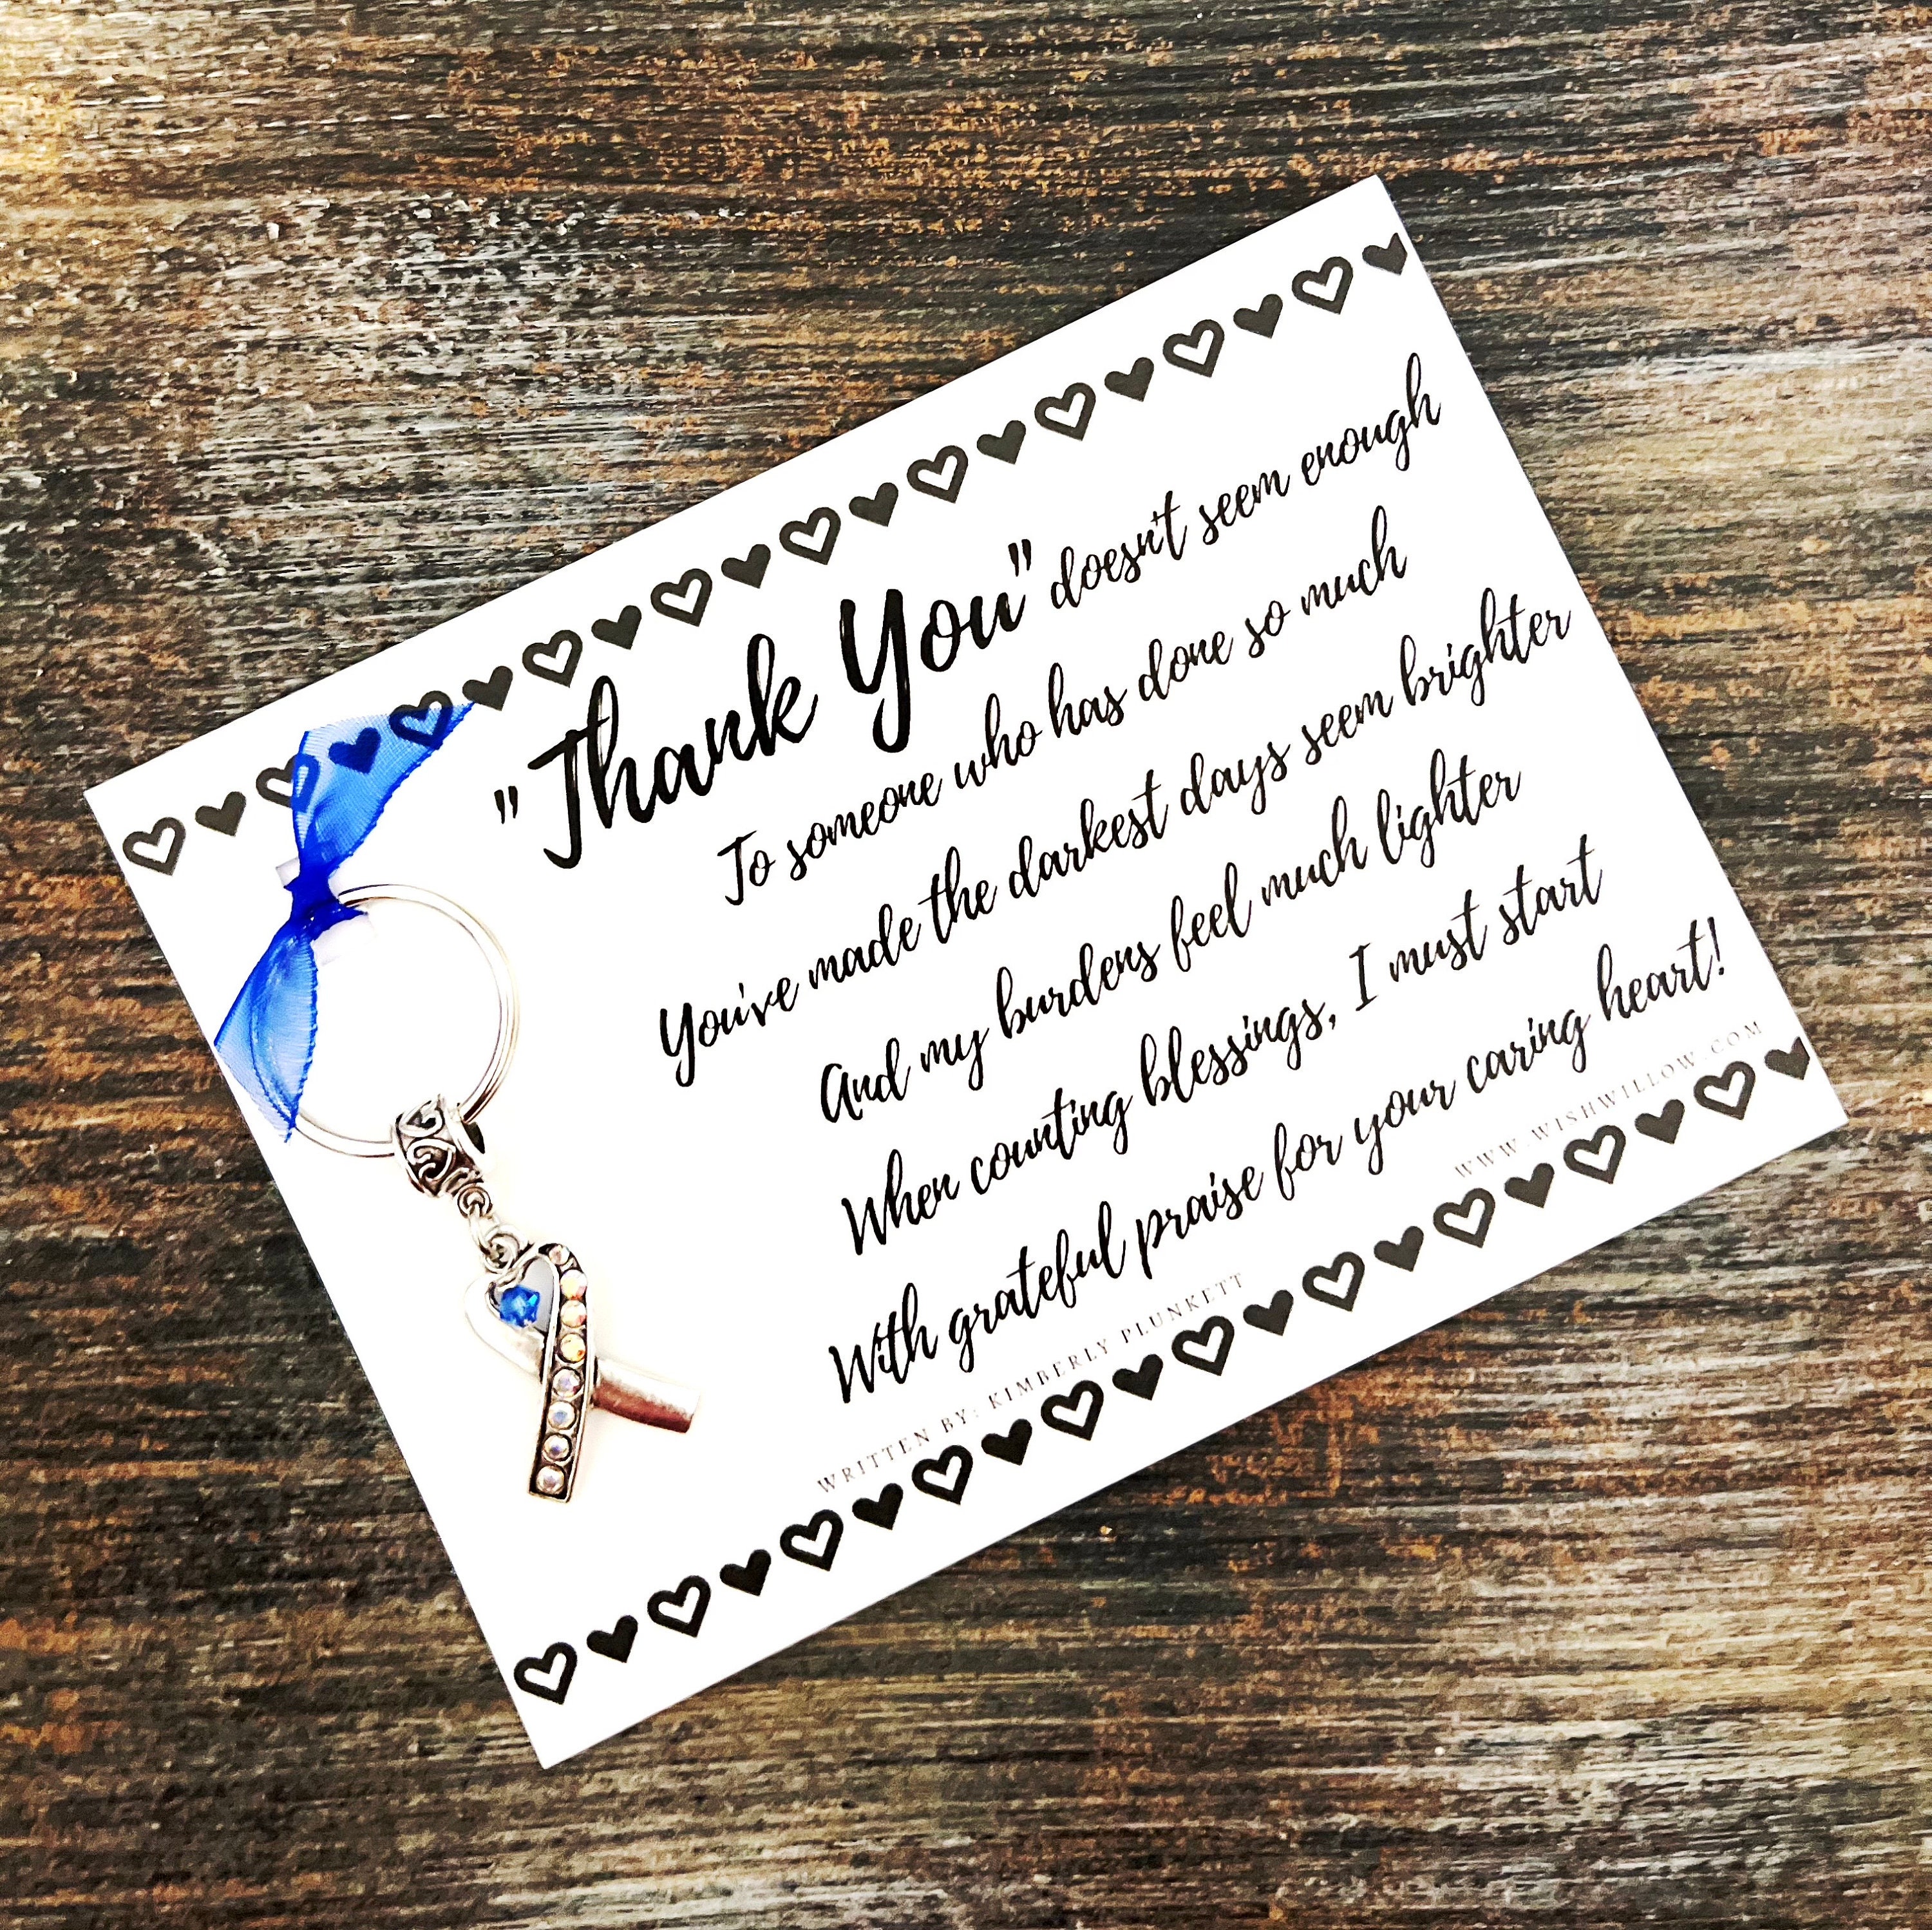 "Thank You" doesn't seem enough
To someone who has done so much
You've made the darkest days seem brighter
And my burdens feel much lighter
When counting blessings, I must start
With grateful praise for your caring heart!
WRITTEN BY: KIMBERLY PLUNKETT
WWW.WISHWILLOW.COM